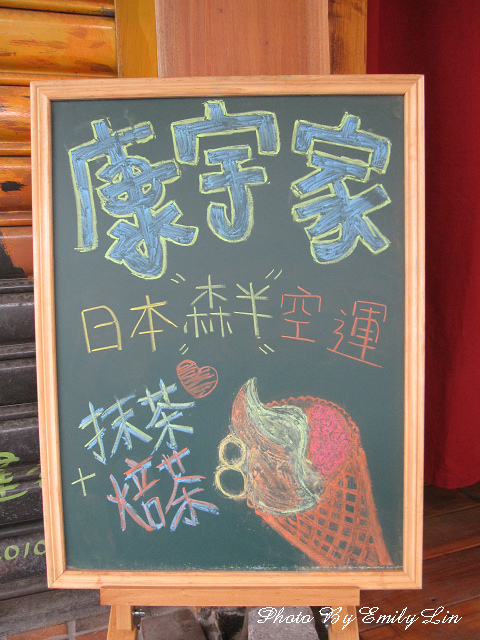 康宇家
日本"森半"空運
抹茶
+焙茶
010
Photo By Emily Lin